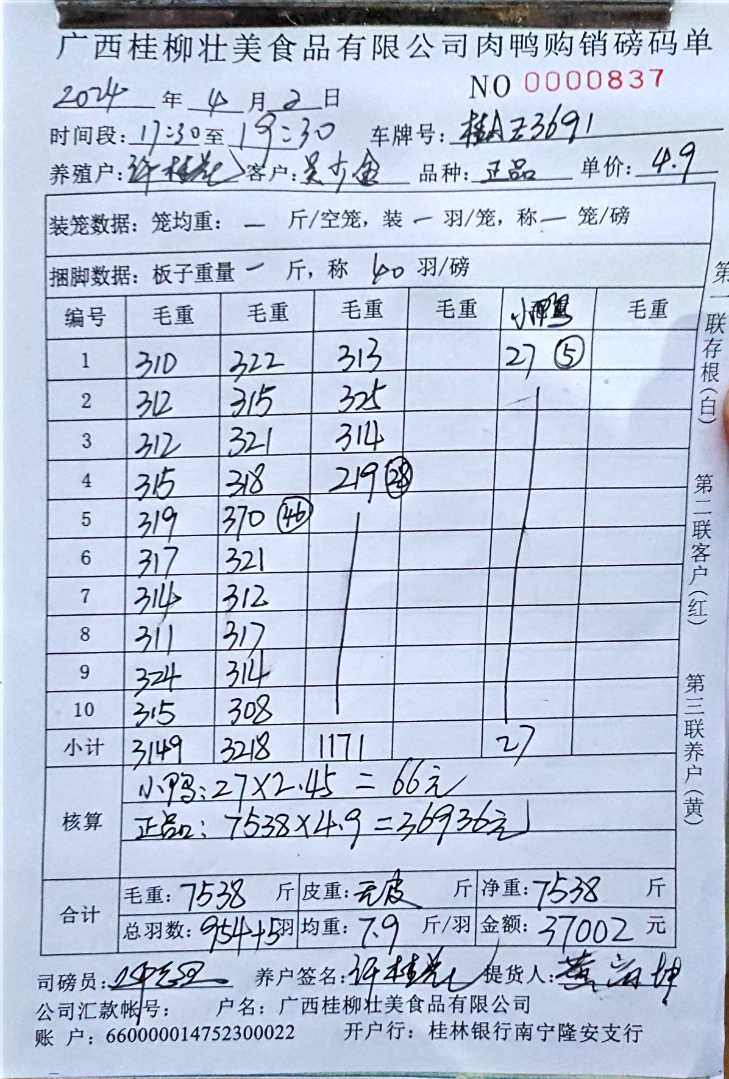 广西桂柳壮美食品有限公司肉鸭购销磅码单
NO 0000837
2024 年 4 月 2 日
时间段: 17:30 至 19:30 车牌号: 桂A Z3691
养殖户: 许桂 客户: 吴少金 品种: 正品 单价: 4.9
装笼数据: 笼均重: — 斤/空笼, 装 — 羽/笼, 称 — 笼/磅
捆脚数据: 板子重量 — 斤, 称 40 羽/磅
编号 毛重 毛重 毛重 毛重 小鸭 毛重
1 310 322 313 27 ⑤
2 312 315 325
3 312 321 314
4 315 318 219 ㉘
5 319 370 ㊻
6 317 321
7 314 312
8 311 317
9 324 314
10 315 308
小计 3149 3218 1171 27
核算
小鸭: 27×2.45 = 66元
正品: 7538×4.9 = 36936元
合计
毛重: 7538 斤 皮重: 无皮 斤 净重: 7538 斤
总羽数: 954+5 羽 均重: 7.9 斤/羽 金额: 37002 元
司磅员: 养户签名: 许桂 提货人: 坤
公司汇款帐号: 户名: 广西桂柳壮美食品有限公司
账 户: 660000014752300022 开户行: 桂林银行南宁隆安支行
第一联存根(白)
第二联客户(红)
第三联养户(黄)